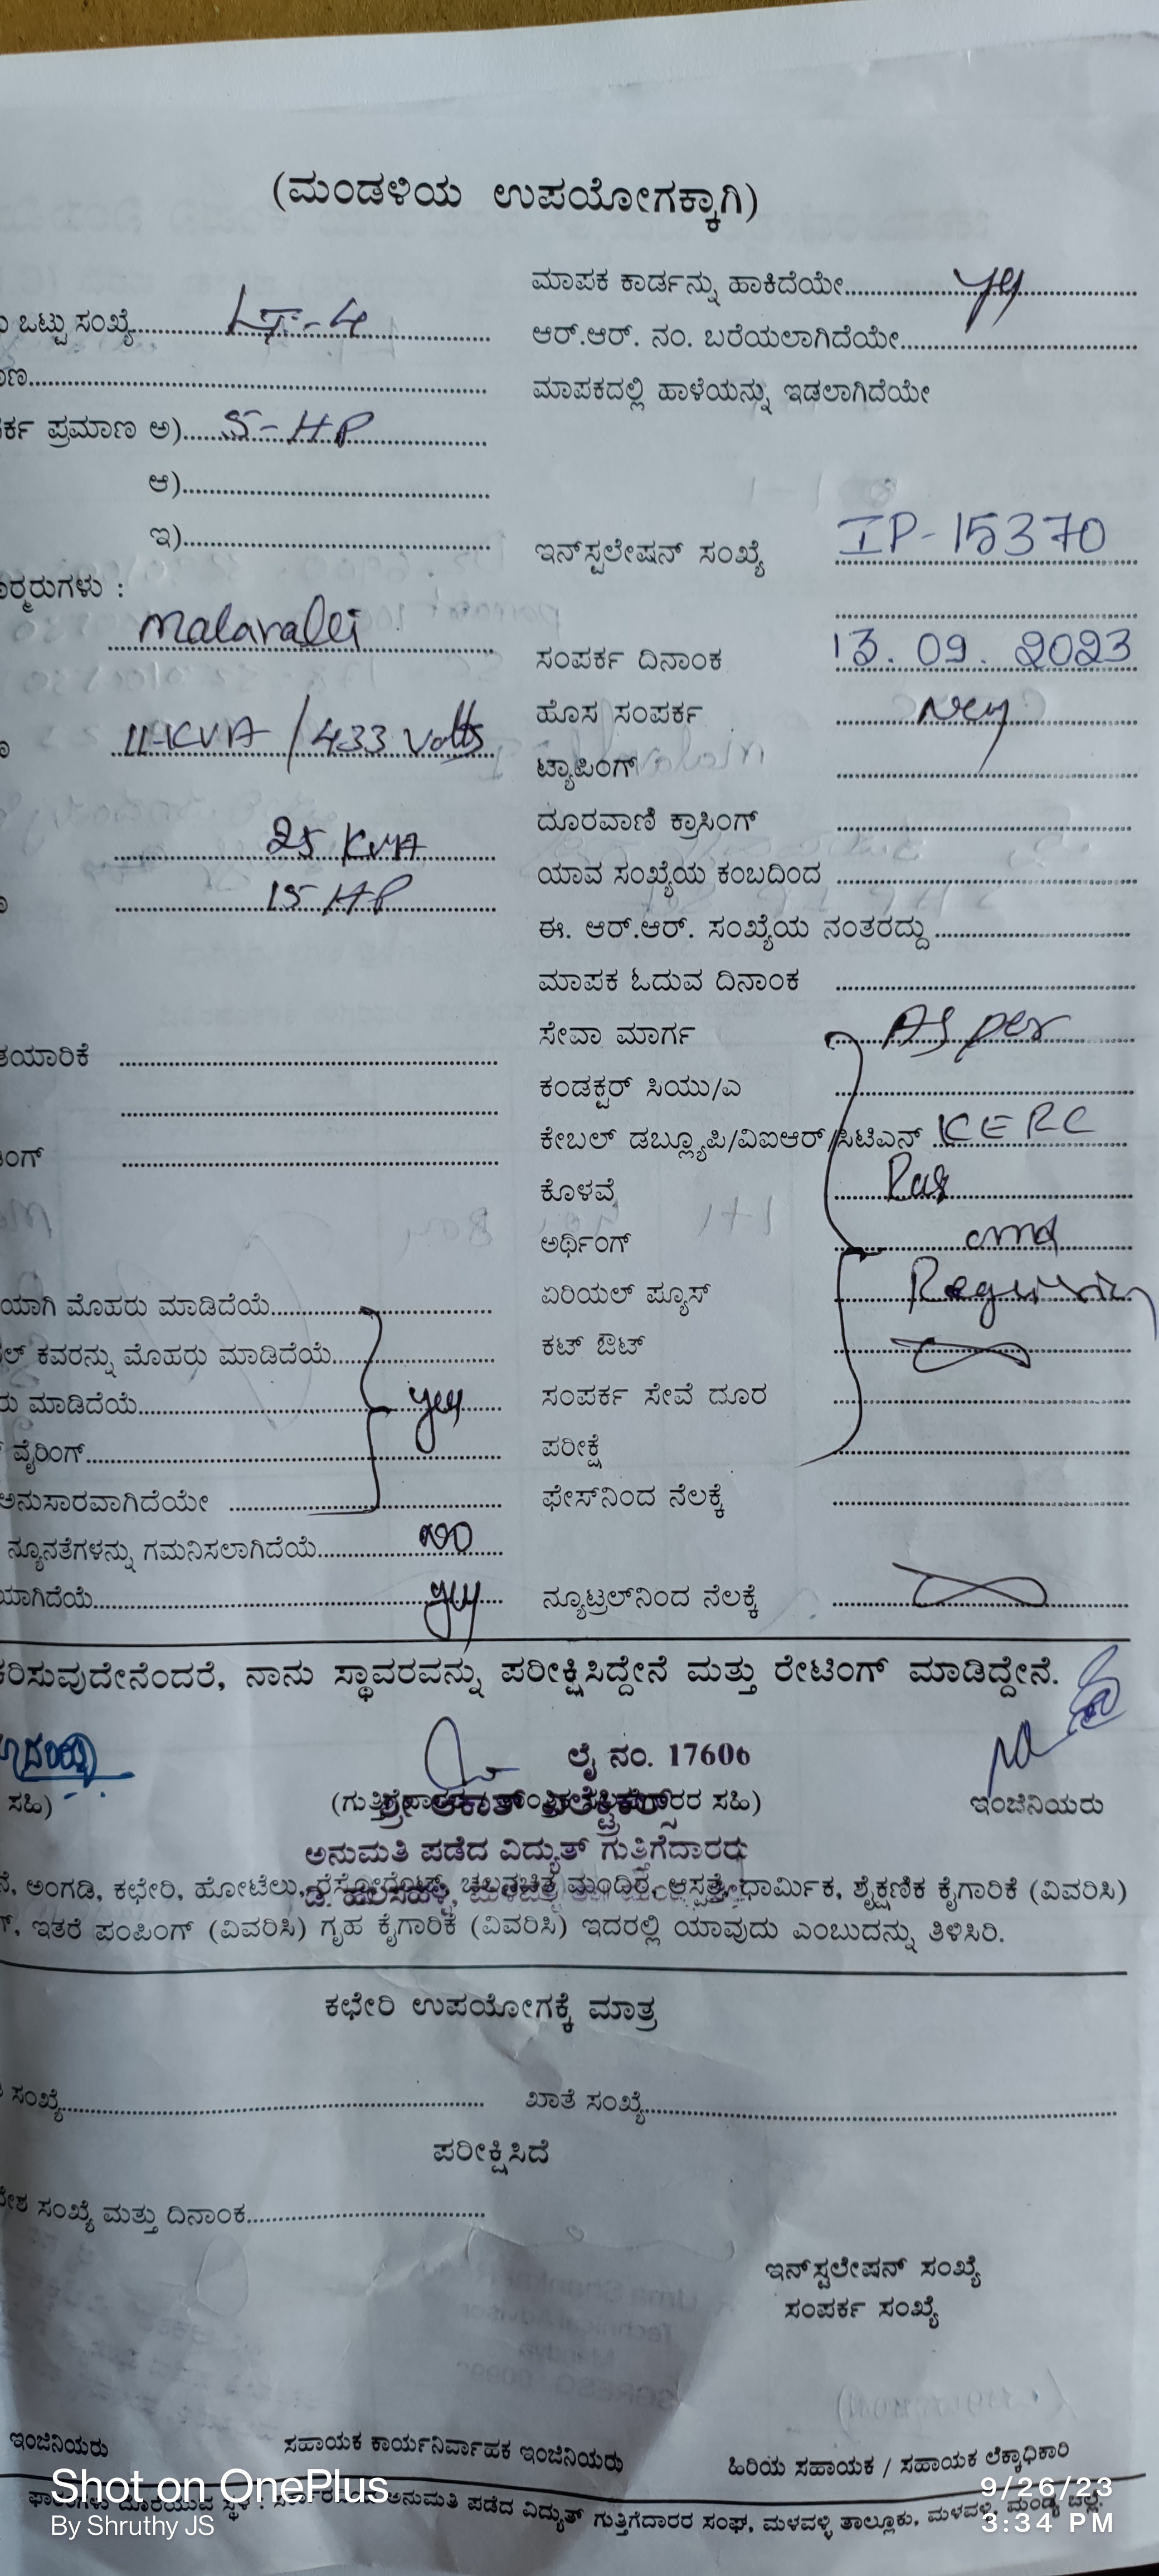 (ಮಂಡಳಿಯ ಉಪಯೋಗಕ್ಕಾಗಿ)
ಒಟ್ಟು ಸಂಖ್ಯೆ LT-4
ರ್ಕ ಪ್ರಮಾಣ ಅ) 5-HP
ಆ)
ಇ)
ರ್ಮರುಗಳು :
Malavalli
11-KVA / 433 Volts
25 KVA
15 HP
ತಯಾರಿಕೆ
ಂಗ್
ಯಾಗಿ ಮೊಹರು ಮಾಡಿದೆಯೆ
ಲ್ ಕವರನ್ನು ಮೊಹರು ಮಾಡಿದೆಯೆ
ರು ಮಾಡಿದೆಯೆ yes
ವೈರಿಂಗ್
ಅನುಸಾರವಾಗಿದೆಯೇ
ನ್ಯೂನತೆಗಳನ್ನು ಗಮನಿಸಲಾಗಿದೆಯೆ NO
ಯಾಗಿದೆಯೆ yes
ಮಾಪಕ ಕಾರ್ಡನ್ನು ಹಾಕಿದೆಯೇ yes
ಆರ್.ಆರ್. ನಂ. ಬರೆಯಲಾಗಿದೆಯೇ
ಮಾಪಕದಲ್ಲಿ ಹಾಳೆಯನ್ನು ಇಡಲಾಗಿದೆಯೇ
ಇನ್‌ಸ್ಟಲೇಷನ್ ಸಂಖ್ಯೆ IP-15370
ಸಂಪರ್ಕ ದಿನಾಂಕ 13.09.2023
ಹೊಸ ಸಂಪರ್ಕ
ಟ್ಯಾಪಿಂಗ್
ದೂರವಾಣಿ ಕ್ರಾಸಿಂಗ್
ಯಾವ ಸಂಖ್ಯೆಯ ಕಂಬದಿಂದ
ಈ. ಆರ್.ಆರ್. ಸಂಖ್ಯೆಯ ನಂತರದ್ದು
ಮಾಪಕ ಓದುವ ದಿನಾಂಕ
ಸೇವಾ ಮಾರ್ಗ As per
ಕಂಡಕ್ಟರ್ ಸಿಯು/ಎ
ಕೇಬಲ್ ಡಬ್ಲ್ಯೂಪಿ/ವಿಐಆರ್/ಸಿಟಿಎಸ್ KERC
ಕೊಳವೆ
ಅರ್ಥಿಂಗ್ and
ಏರಿಯಲ್ ಪ್ಯೂಸ್
ಕಟ್ ಔಟ್
ಸಂಪರ್ಕ ಸೇವೆ ದೂರ
ಪರೀಕ್ಷೆ
ಫೇಸ್‌ನಿಂದ ನೆಲಕ್ಕೆ
ನ್ಯೂಟ್ರಲ್‌ನಿಂದ ನೆಲಕ್ಕೆ
ಕರಿಸುವುದೇನೆಂದರೆ, ನಾನು ಸ್ಥಾವರವನ್ನು ಪರೀಕ್ಷಿಸಿದ್ದೇನೆ ಮತ್ತು ರೇಟಿಂಗ್ ಮಾಡಿದ್ದೇನೆ.
ಲೈ ನಂ. 17606
ಸಹಿ) ಇಂಜಿನಿಯರು
ಅನುಮತಿ ಪಡೆದ ವಿದ್ಯುತ್ ಗುತ್ತಿಗೆದಾರರು
ಅಂಗಡಿ, ಕಛೇರಿ, ಹೋಟೆಲು, ರೆಸ್ಟೋರೆಂಟ್, ಚಲನಚಿತ್ರ ಮಂದಿರ, ಆಸ್ಪತ್ರೆ, ಧಾರ್ಮಿಕ, ಶೈಕ್ಷಣಿಕ ಕೈಗಾರಿಕೆ (ವಿವರಿಸಿ)
ಇತರೆ ಪಂಪಿಂಗ್ (ವಿವರಿಸಿ) ಗೃಹ ಕೈಗಾರಿಕೆ (ವಿವರಿಸಿ) ಇದರಲ್ಲಿ ಯಾವುದು ಎಂಬುದನ್ನು ತಿಳಿಸಿರಿ.
ಕಛೇರಿ ಉಪಯೋಗಕ್ಕೆ ಮಾತ್ರ
ಸಂಖ್ಯೆ ಖಾತೆ ಸಂಖ್ಯೆ
ಪರೀಕ್ಷಿಸಿದೆ
ಸಂಖ್ಯೆ ಮತ್ತು ದಿನಾಂಕ
ಇನ್‌ಸ್ಟಲೇಷನ್ ಸಂಖ್ಯೆ
ಸಂಪರ್ಕ ಸಂಖ್ಯೆ
ಇಂಜಿನಿಯರು ಸಹಾಯಕ ಕಾರ್ಯನಿರ್ವಾಹಕ ಇಂಜಿನಿಯರು ಹಿರಿಯ ಸಹಾಯಕ / ಸಹಾಯಕ ಲೆಕ್ಕಾಧಿಕಾರಿ
ಅನುಮತಿ ಪಡೆದ ವಿದ್ಯುತ್ ಗುತ್ತಿಗೆದಾರರ ಸಂಘ, ಮಳವಳ್ಳಿ ತಾಲ್ಲೂಕು, ಮಳವಳ್ಳಿ, ಮಂಡ್ಯ ಜಿಲ್ಲೆ.
Shot on OnePlus
By Shruthy JS
9/26/23
3:34 PM